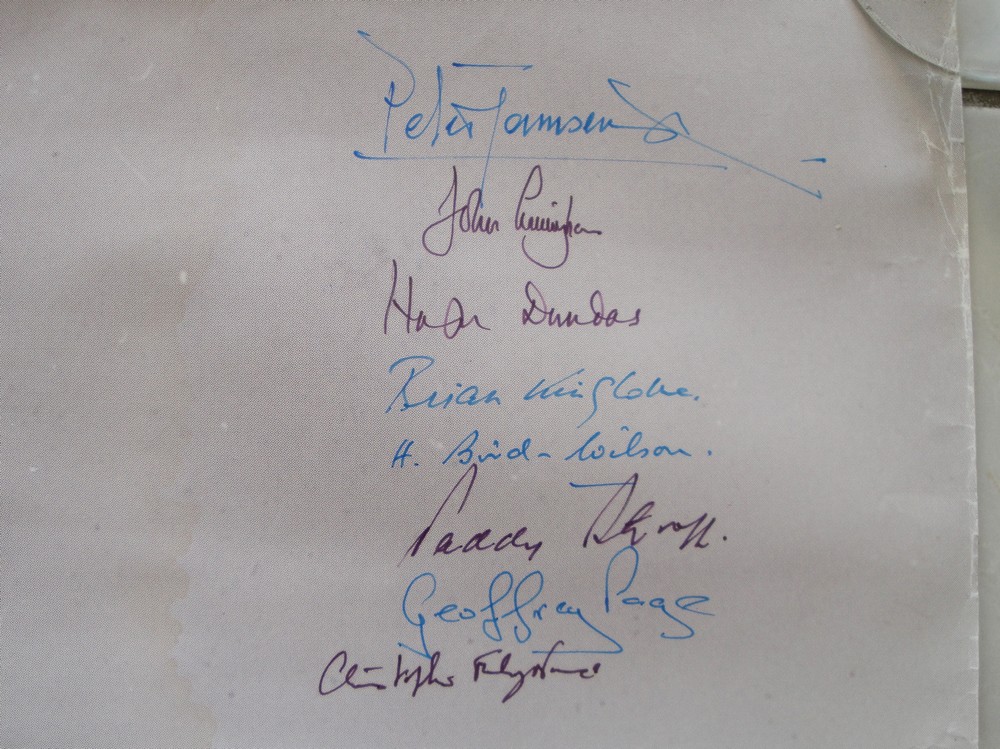 Peter Townsend
John Cunningham
Hugh Dundas
Brian Kingcome.
H. Bird-Wilson.
Paddy
Geoffrey Page
Christopher